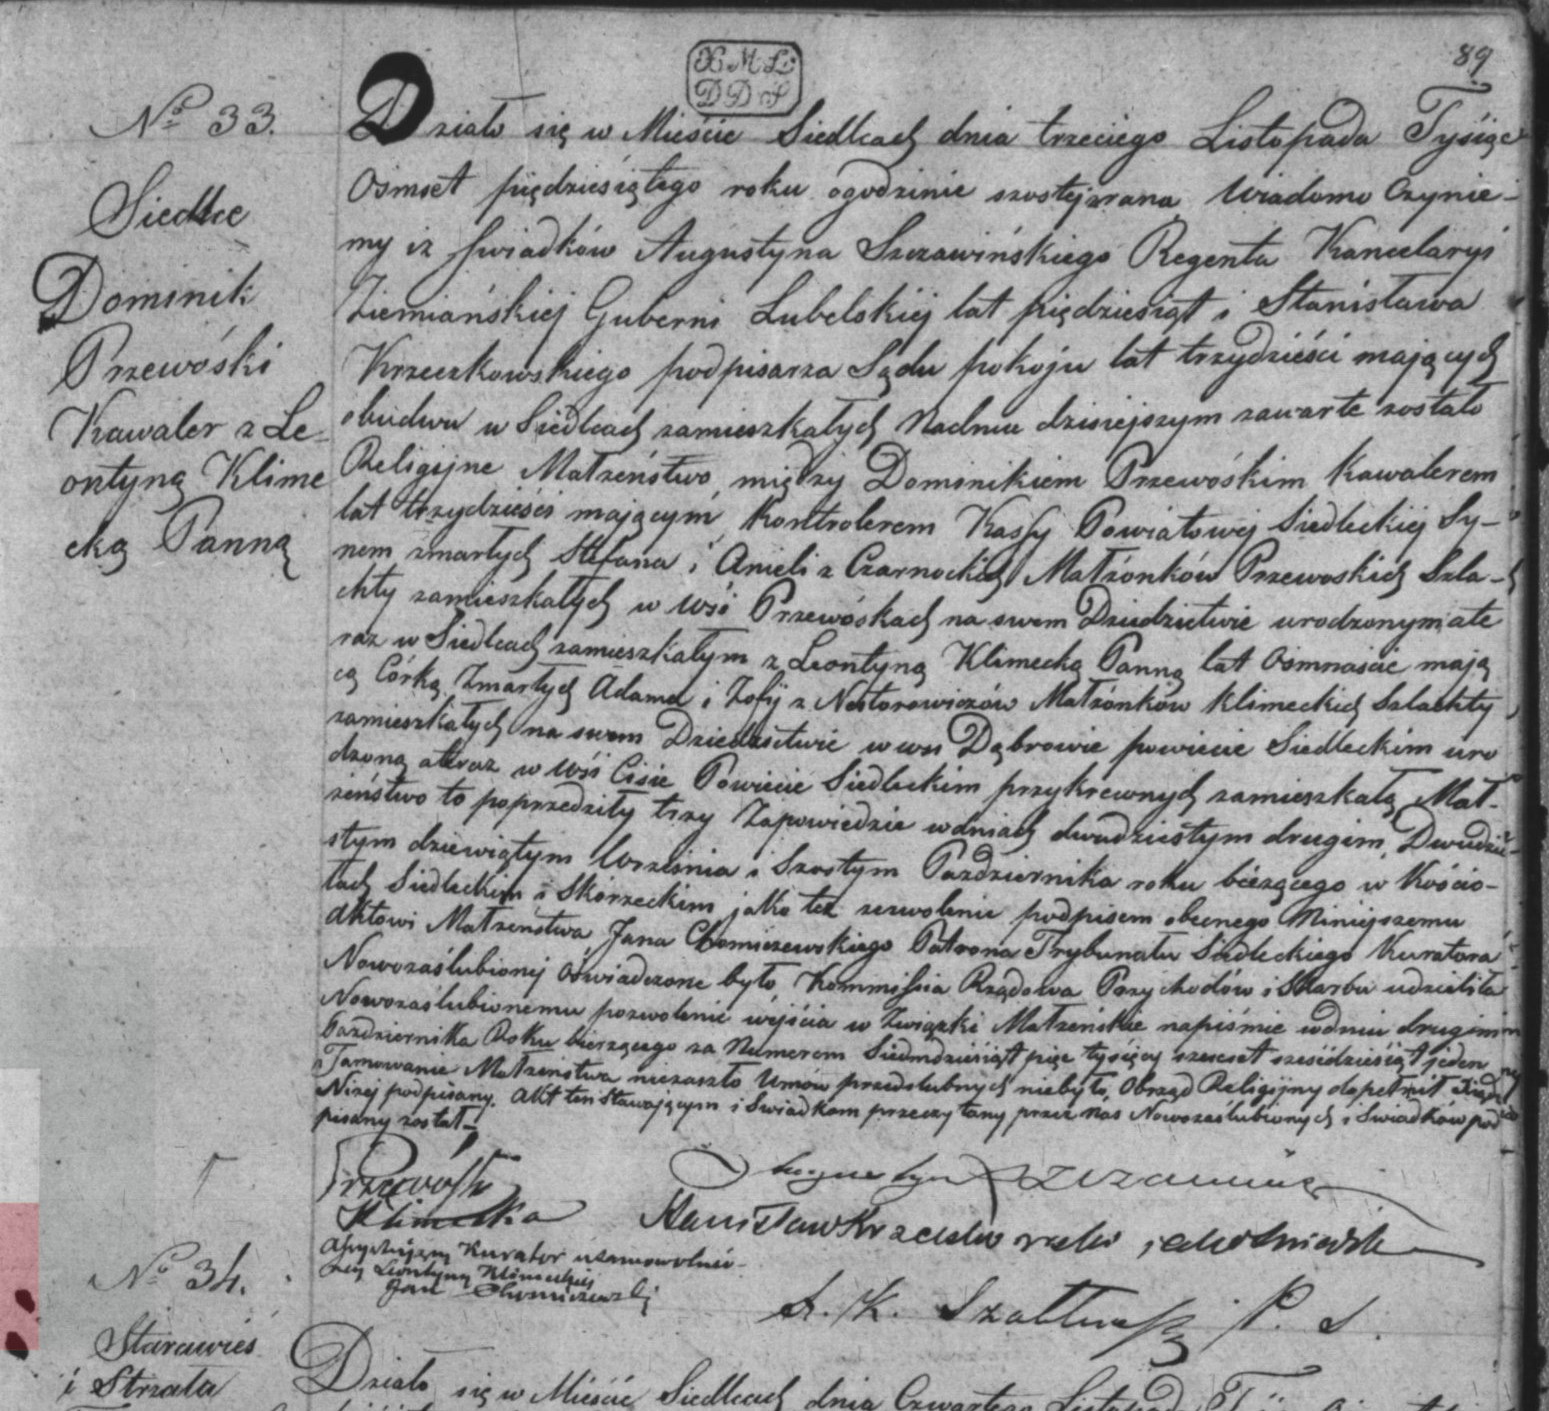 89
X M L
D D S
No 33.
Siedlce
Dominik
Przewóski
Kawaler z Le=
ontyną Klime
cką Panną
Działo się w Mieście Siedlcach dnia trzeciego Listopada Tysiąc
Osmset pięćdziesiątego roku o godzinie szostej zrana Wiadomo Czynie-
my iż Swiadków Augustyna Szczawińskiego Regenta Kancelaryi
Ziemiańskiej Guberni Lubelskiéj lat pięćdziesiąt i Stanisława
Krzeczkowskiego podpisarza Sądu pokoju lat trzydzieści mających
obudwu w Siedlcach zamieszkałych Na dniu dzisiejszym zawarte zostało
Religijne Małżeństwo, między Dominikiem Przewóskim Kawalerem
lat trzydzieści mającym, Kontrolerem Kassy Powiatowej Siedleckiéj Sy-
nem zmarłych Stefana i Anieli z Czarnockich Małżonków Przewoskich Szla-
chty zamieszkałych w Wsi Przewóskach na swem Dziedzictwie urodzonym a te
raz w Siedlcach zamieszkałym z Leontyną Klimecką Panną lat Osmnaście mają
cą Córką Zmarłych Adama i Zofij z Nestorowiczów Małżonków Klimeckich Szlachty
zamieszkałych na swem Dziedzictwie w wsi Dąbrowie powiecie Siedleckim uro
dzoną a teraz w Wsi Cisie Powiecie Siedleckim przy krewnych zamieszkałą Mał-
żeństwo to poprzedziły trzy Zapowiedzie w dniach dwudziestym drugim, Dwudzie-
stym dziewiątym Września i Szostym Pazdziernika roku bieżącego w Kościo-
łach Siedleckim i Skórzeckim jako też zezwolenie podpisem obecnego Niniejszemu
Aktowi Małżeństwa Jana Chomiczewskiego Patrona Trybunału Siedleckiego Kuratora
Nowozaślubionej Oświadczone było Kommissia Rządowa Przychodów i Skarbu udzieliła
Nowozaślubionemu pozwolenie wéjścia w Związki Małżeńskie na piśmie w dniu drugim
Pazdziernika Roku bierzącego za Numerem Siedmdziesiąt pięć tysięcy szescset sześćdziesiąt jeden
Tamowanie Małżeństwa niezaszło Umów przedślubnych niebyło, Obrząd Religijny dopełnił Xiądz
Niżej podpisany. Akt ten Stawającym i Swiadkom przeczytany przez nas Nowozaślubionych i Swiadków pod
pisany został
Przewóski
Klimecka
Augustyn Szczawiński
Stanisław Krzeczkowski
Assystujący Kurator usamowolnio-
nej Leontyny Klimeckiej
Jan Chomiczewski
No 34.
Starawieś
i Strzała
Działo się w Mieście Siedlcach dnia Czwartego Listopada